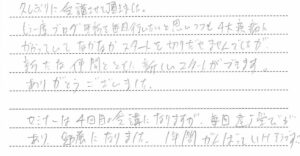 久しぶりに会議させて頂きました。
もう一度ブログ 更新を毎日行いたいと思いつつも 4大葛藤に
かかっていて なかなかスタートを切りきせませんでしたが
新たな仲間とともに 新しいスタートができます。
ありがとうございました。
セミナーは4回目の会議になりますが、毎回 気付きが
あり、勉強になりました。1年間 がんばっていけそうです。